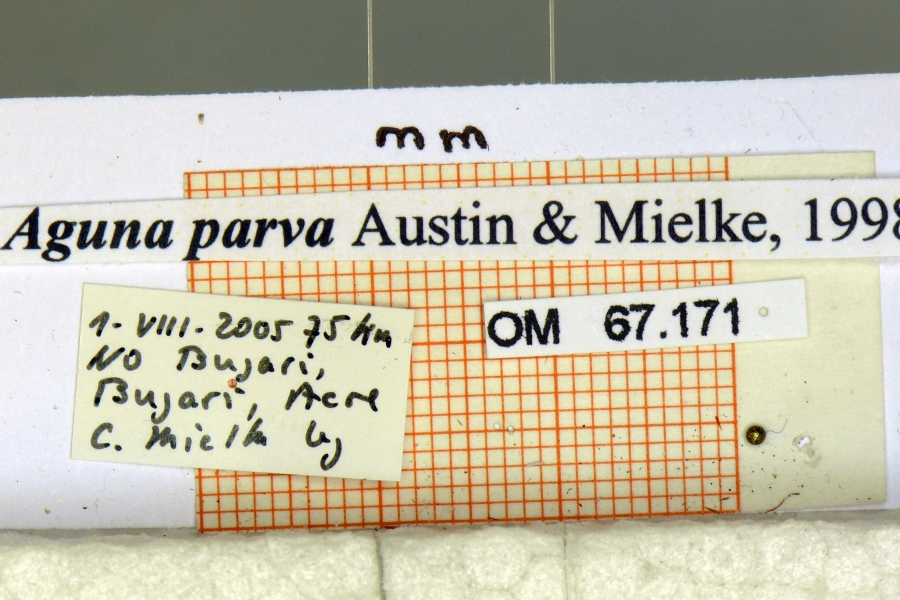 mm
Aguna parva Austin & Mielke, 1998
1-VIII-2005 75 km
NO Bujari,
Bujari, Acre
C. Mielke lg
OM 67.171